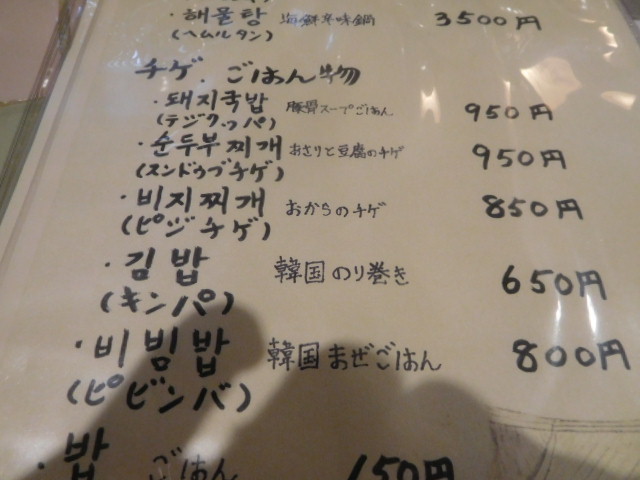 ・해물탕 海鮮辛味鍋 3500円
(ヘムルタン)
チゲ.ごはん物
・돼지국밥 豚骨スープごはん 950円
(テジクッパ)
・순두부찌개 おさりと豆腐のチゲ 950円
(スンドゥブチゲ)
・비지찌개 おからのチゲ 850円
(ピジチゲ)
・김밥 韓国のり巻き 650円
(キンパ)
・비빔밥 韓国まぜごはん 800円
(ピビンバ)
・밥 ごはん 150円